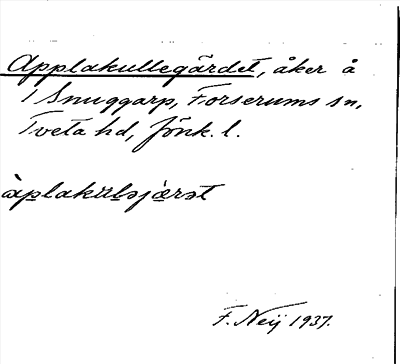 Applakullegärdet, åker å
1 Snuggarp, Forserums sn,
Tveta hd, Jönk. l.
F. Neij 1937.